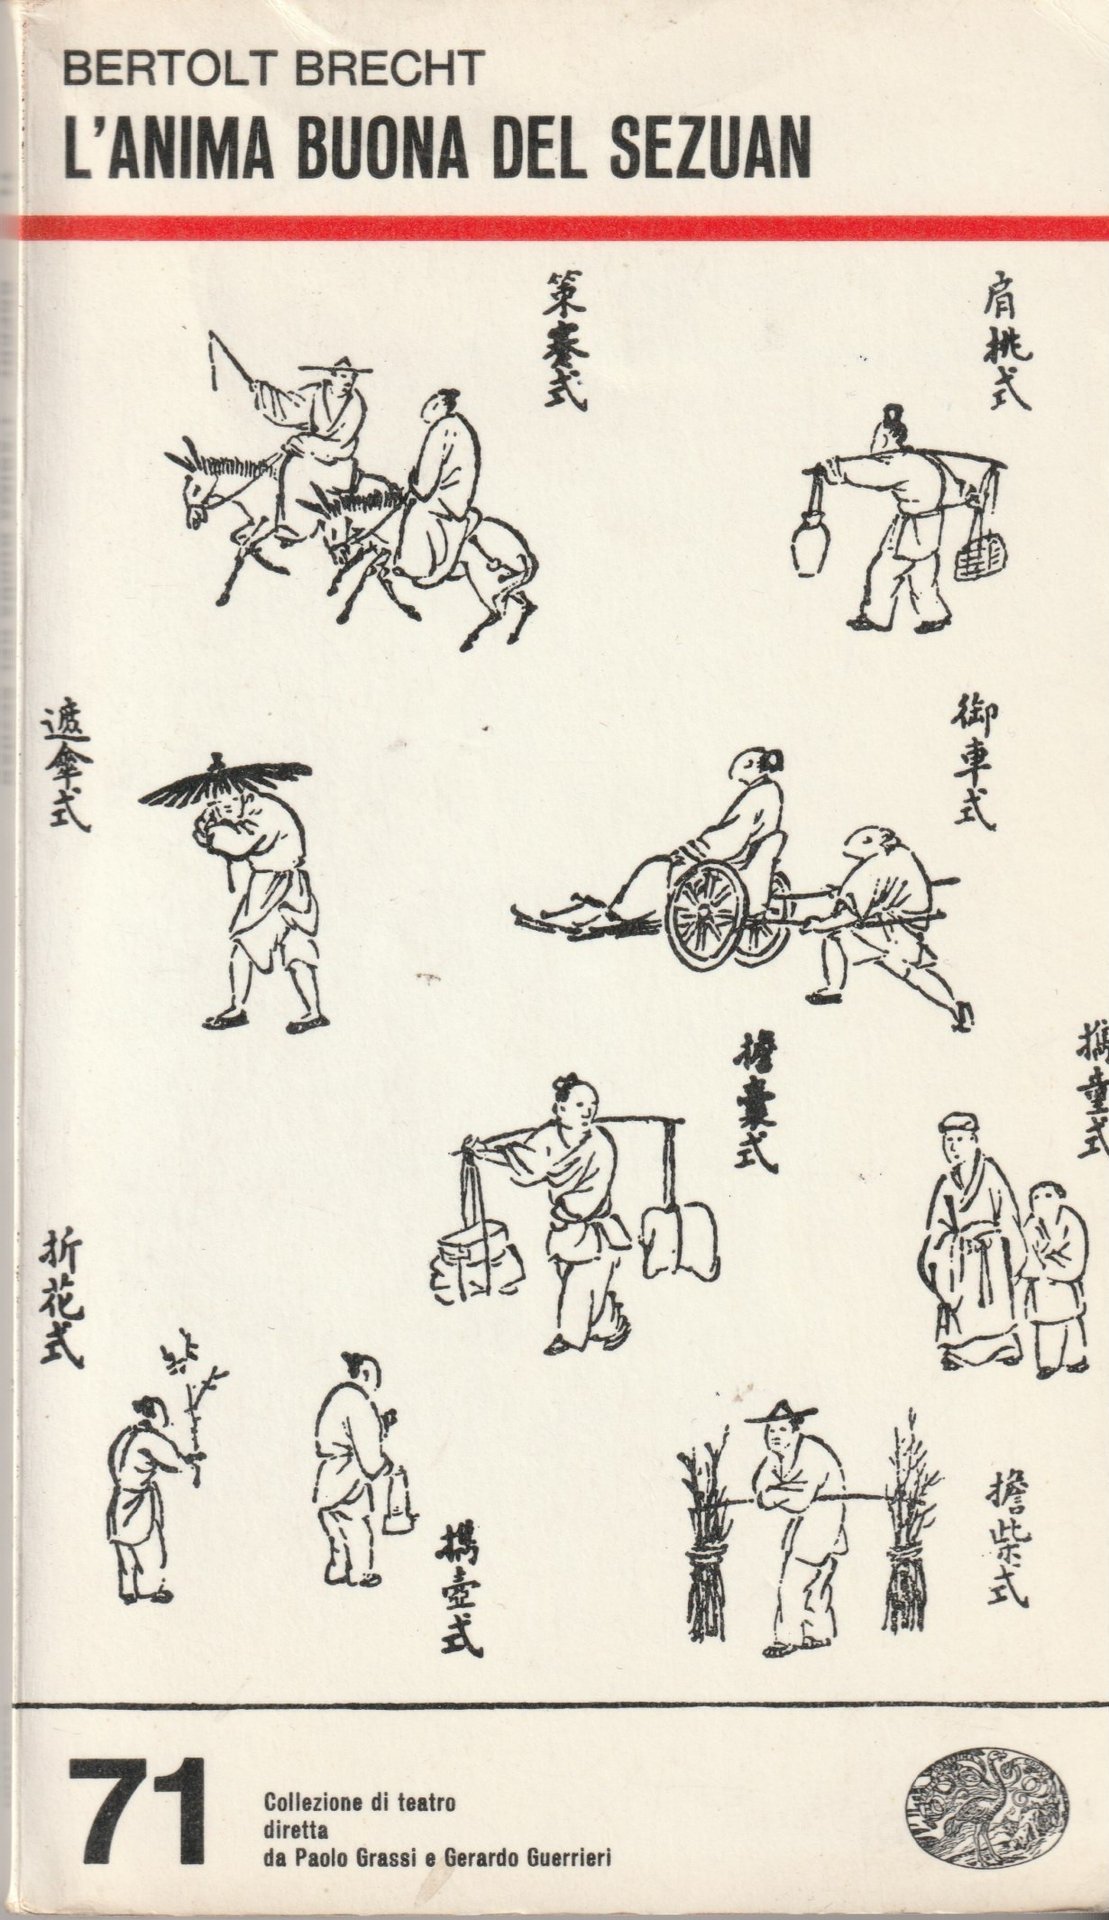 BERTOLT BRECHT
L'ANIMA BUONA DEL SEZUAN
策蹇式
肩挑式
遮傘式
御車式
擔囊式
攜童式
折花式
攜壺式
擔柴式
71
Collezione di teatro
diretta
da Paolo Grassi e Gerardo Guerrieri